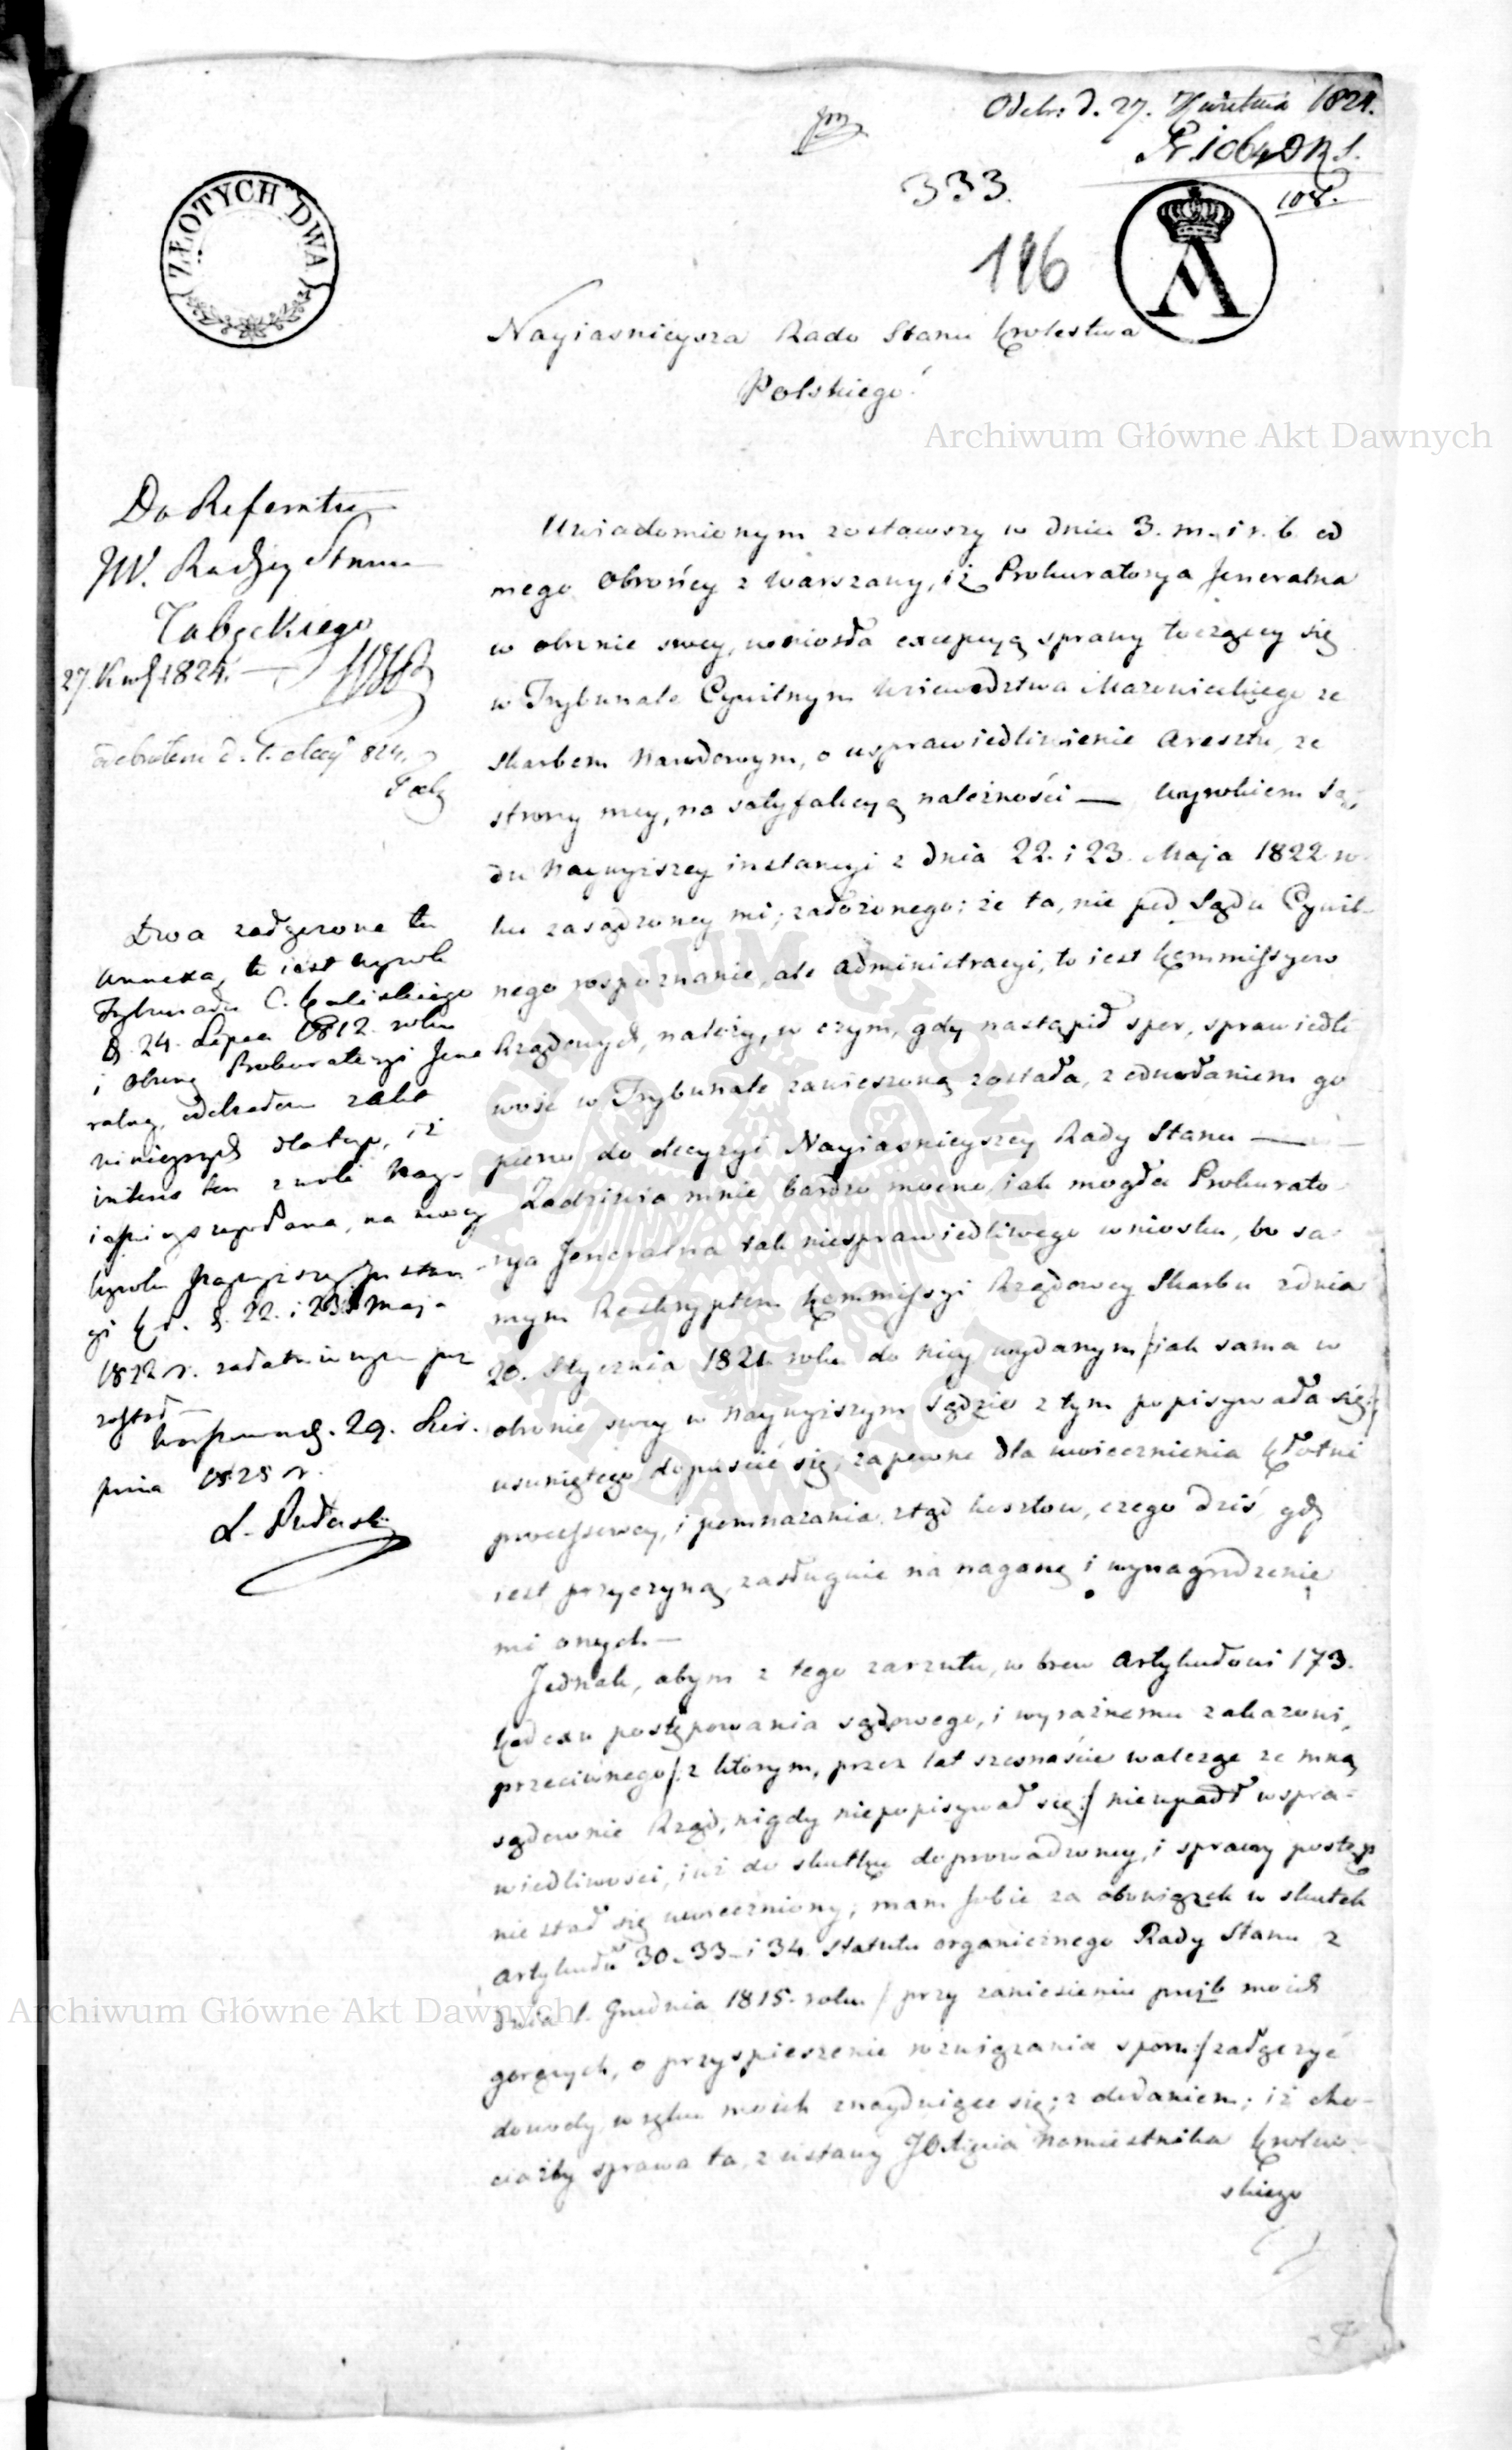 Odebr: d. 27. Kwietnia 1824.
333.
108.
196
ZŁOTYCH DWA
A
Nayiasnieysza Rado Stanu Krolestwa
Polskiego!
Archiwum Główne Akt Dawnych
Do Referatu
JW. Radzcy Stanu
27. Kwt. 1824.
odebrałem d. 1. 824.
Dwa załączone tu
annexa, to iest wyrok
Trybunału C. Kaliskiego
d. 24. Lipca 1812. roku
i obronę Prokuratoryi Jene
ralney, odebrałem z akt
ninieyszych dlatego, iż
interes ten z woli Nay-
na mocy
wyroku Naywyższey Instan-
cyi d. 22. i 23. Maja
1822 r. załatwionym już
został —
d. 29. Sier.
pnia 1828 r.
Uwiadomionym zostawszy w dniu 3. m. i r. b. od
mego Obrońcy z Warszawy, iż Prokuratorya Jeneralna
w obronie swey, wniosła excepcyą sprawy toczącey się
w Trybunale Cywilnym Woiewodztwa Mazowieckiego ze
Skarbem Narodowym, o usprawiedliwienie Aresztu, ze
strony mey, na satysfakcyą należności — Wyrokiem Są,
du Naywyższey instancyi z dnia 22. i 23. Maja 1822 ro
ku zasądzoney mi; założonego; że ta, nie pod Sądu Cywil-
nego rospoznanie, ale Administracyi, to iest Kommissyow
Rządowych, należy, w czym, gdy nastąpił spor, sprawiedli
wość w Trybunale zawieszoną została, z odwołaniem go
pierw do decyzyi Nayiasnieyszey Rady Stanu —
Zadziwia mnie bardzo mocno, iak mogła Prokurato-
rya Jeneralna tak niesprawiedliwego wniosku, bo sa-
mym Reskryptem Kommissyi Rządowey Skarbu z dnia
20. Stycznia 1821. roku do niey wydanym /: iak sama w
obronie swey w Naywyższym Sądzie z tym popisywała się :/
usuniętego, dopuścić się, zapewne dla uwiecznienia Kłotni
processowey, i pomnażania ztąd kosztow, czego dziś gdy
iest przyczyną, zasługuie na naganę i wynagrodzenie
mi onych —
Jednak, abym z tego zarzutu, w brew Artykułowi 173.
Kodexu postępowania sądowego, i wyraźnemu zakazowi,
przeciwnego /: z ktorym, przez lat szesnaście walcząc ze mną
sądownie Rząd, nigdy niepopisywał się :/ nieupadł w spra-
wiedliwości, iuż do skutku doprowadzoney, i sprawy postęp
nie stał się uwieczniony; mam sobie za obowiązek w skutek
Artykułu 30. 33. i 34. Statutu organicznego Rady Stanu z
dnia 1. Grudnia 1815. roku / przy zaniesieniu proźb moich
gorących, o przyspieszenie rozwiązania sporu :/ załączyć
dowody, w ręku moich znayduiące się; z dodaniem; iż cho-
ciażby sprawa ta, z ustawy JOXięcia Namiestnika Krolew-
skiego
Archiwum Główne Akt Dawnych
ARCHIWUM GŁÓWNE AKT DAWNYCH